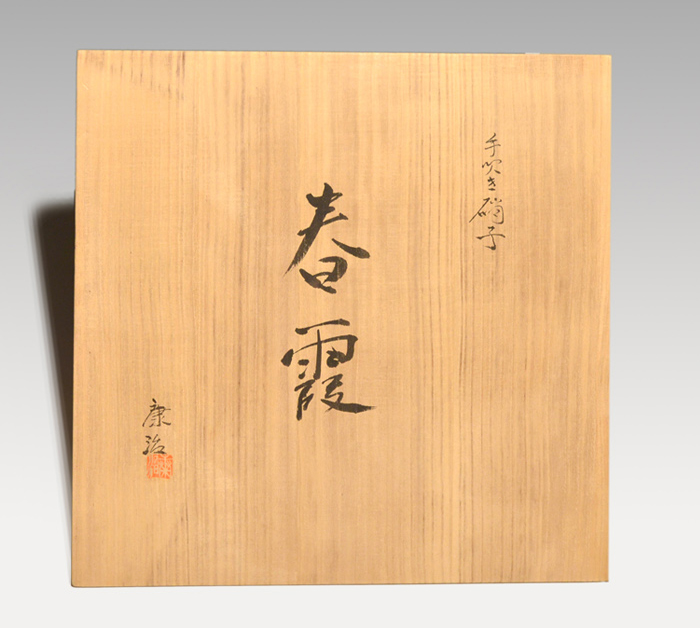 手吹き硝子
春霞
康治